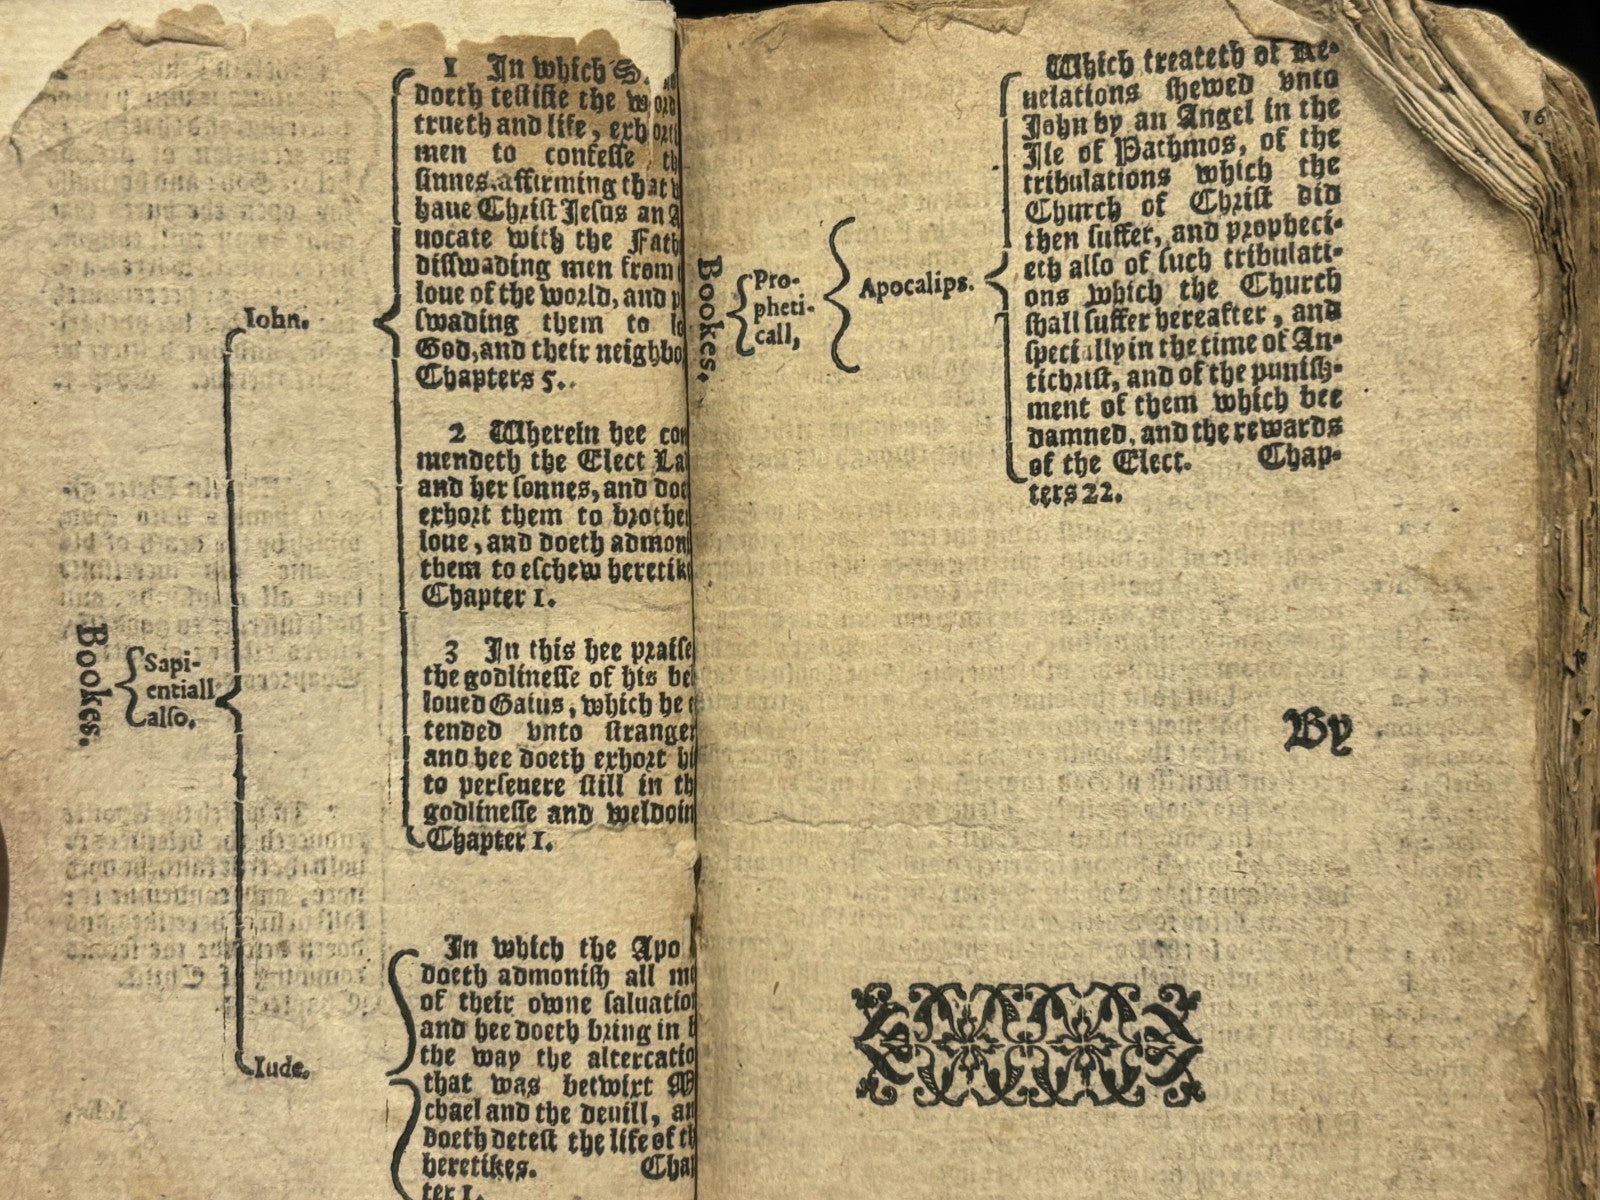 Bookes.
Sapi-
entiall
also.
Iohn.
1 In which S.
doeth testifie the word
trueth and life, exhort
men to confesse
sinnes, affirming that
haue Christ Jesus an A
uocate with the Fath
disswading men from
loue of the world, and p
swading them to lo
God, and their neighbo
Chapters 5.
2 Wherein hee com
mendeth the Elect La
and her sonnes, and doe
exhort them to brother
loue, and doeth admoni
them to eschew heretik
Chapter 1.
3 In this hee praise
the godlinesse of his be
loued Gaius, which he
tended vnto stranger
and hee doeth exhort hi
to perseuere still in th
godlinesse and weldoin
Chapter 1.
Iude.
In which the Apo
doeth admonish all me
of their owne saluatio
and hee doeth bring in b
the way the altercatio
that was betwixt M
chael and the deuill, an
doeth detest the life of th
heretikes. Chap
ter 1.
16
Bookes.
Pro-
pheti-
call,
Apocalips.
Which treateth of Re-
uelations shewed vnto
John by an Angel in the
Ile of Pathmos, of the
tribulations which the
Church of Christ did
then suffer, and propheci-
eth also of such tribulati-
ons which the Church
shall suffer hereafter, and
specially in the time of An-
tichrist, and of the punish-
ment of them which bee
damned, and the rewards
of the Elect. Chap-
ters 22.
By